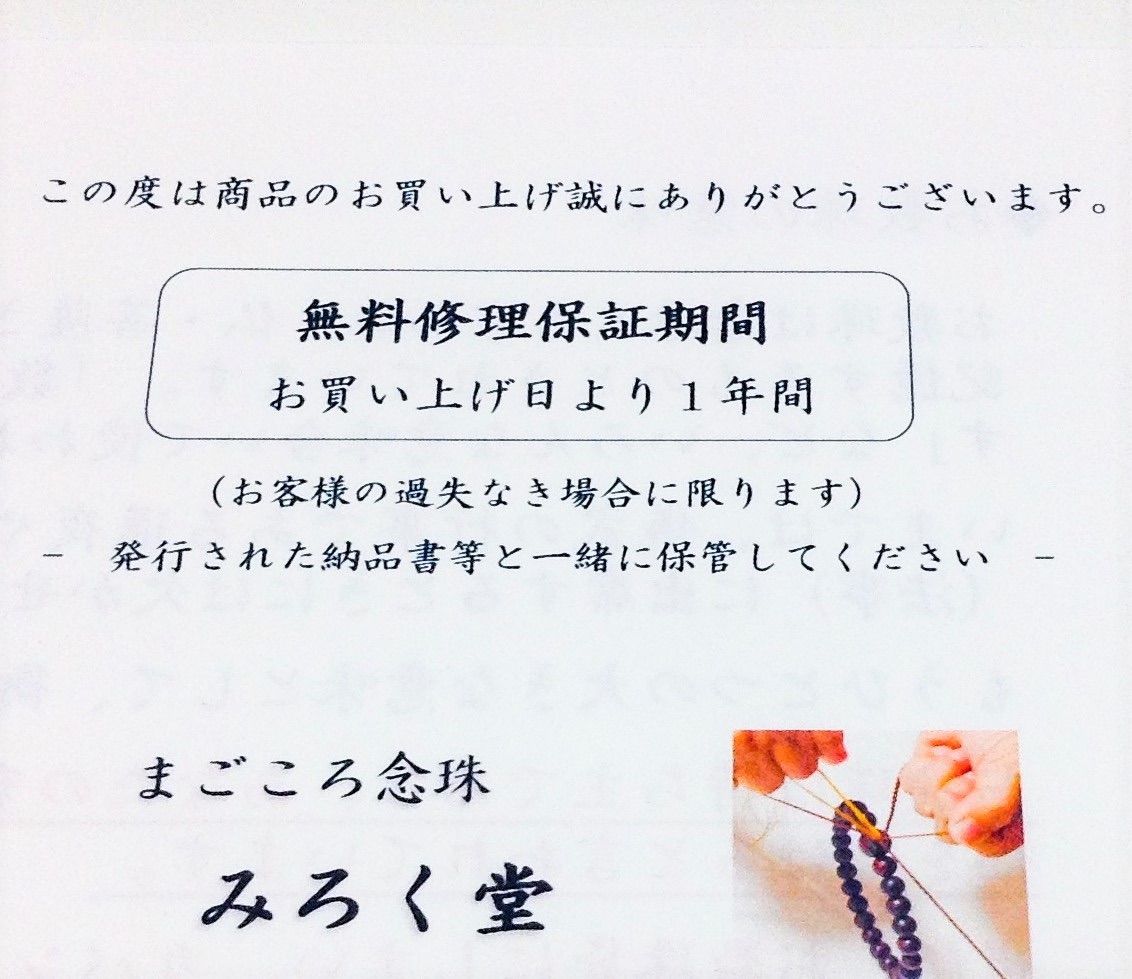 この度は商品のお買い上げ誠にありがとうございます。
無料修理保証期間
お買い上げ日より１年間
（お客様の過失なき場合に限ります）
－ 発行された納品書等と一緒に保管してください －
まごころ念珠
みろく堂